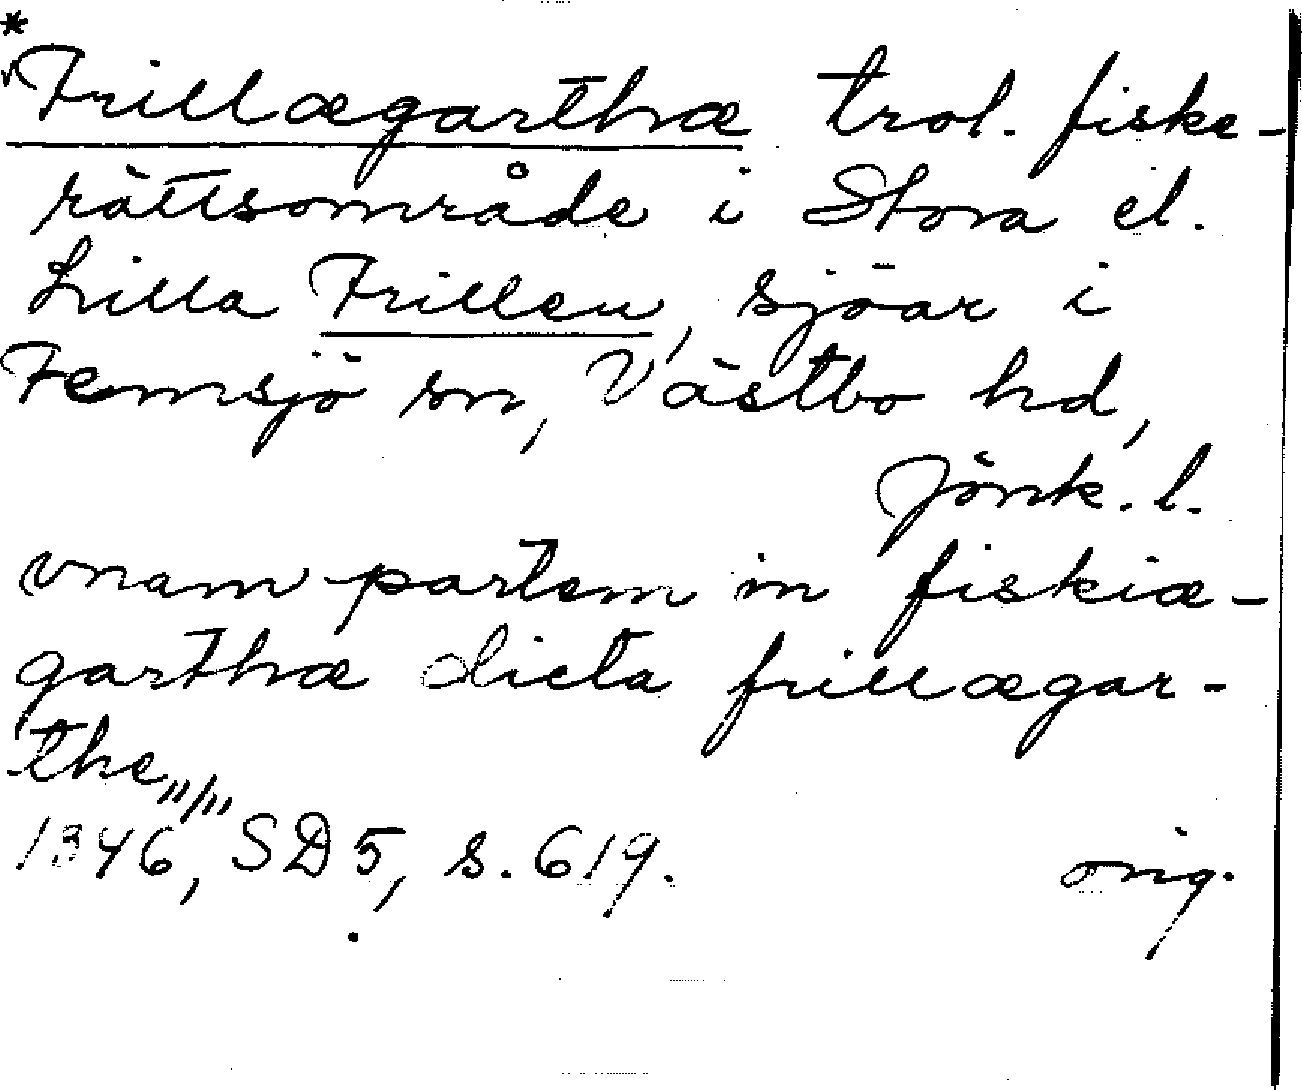 *
Frillægarthæ trol. fiske-
rättsområde i Stora el.
Lilla Frillen, sjöar i
Femsjö sn, Västbo hd,
Jönk. l.
vnam partem in fiskiæ-
garthæ dicta frillægar-
the„/„
1346, SD 5, s. 619. orig.